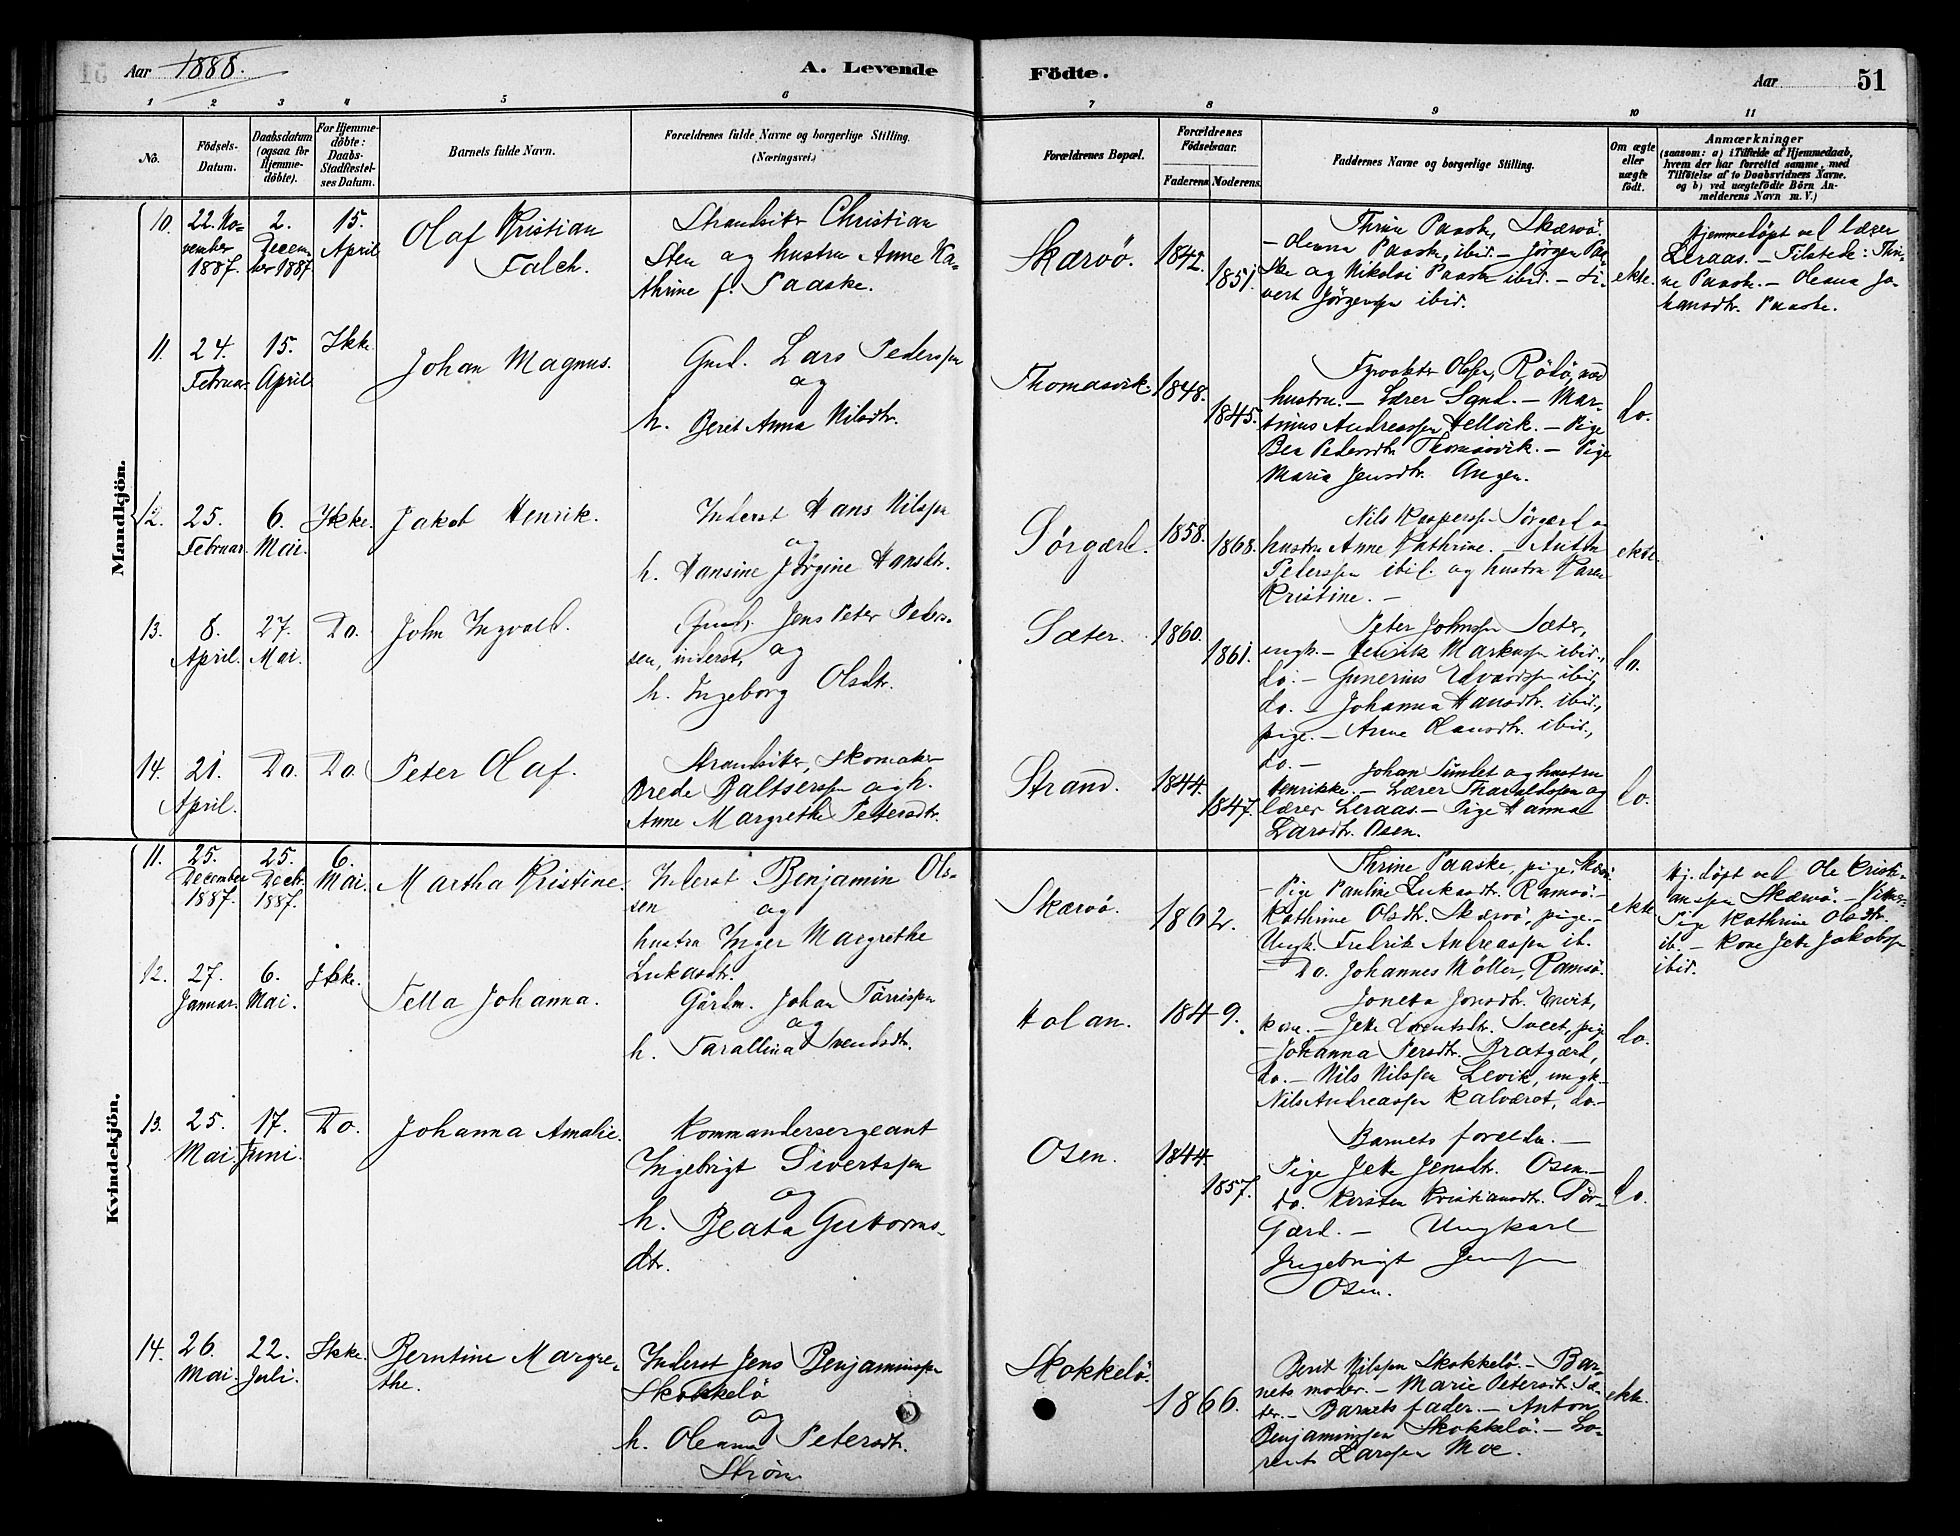 Aar 1888. A. Levende Födte. Aar 51
1 2 3 4 5 6 7 8 9 10 11
No.
Födsels-
Datum.
Daabsdatum
(ogsaa for
Hjemme-
döbte).
For Hjemme-
döbte:
Daabs-
Stadfæstel-
ses Datum.
Barnets fulde Navn.
Forældrenes fulde Navne og borgerlige Stilling.
(Næringsvei.)
Forældrenes Bopæl.
Forældrenes
Födselsaar.
Faderens. Moderens.
Faddernes Navne og borgerlige Stilling.
Om ægte
eller
uægte
født.
Anmærkninger
(saasom: a) i Tilfælde af Hjemmedaab,
hvem der har forrettet samme, med
Tilföielse af to Daabsvidners Navne.
og b) ved uægtefödte Börn An-
melderens Navn m. V.)
Mandkjön.
10. 22. No-
vember
1887
2.
Decem-
ber 1887
15.
April
Olaf Kristian
Falch.
Strandsitter Christian
Sten og hustru Anne Ka-
thrine f. Paaske.
Skærvö. 1842. 1851.
Thrine Paaske, Skærvö.
- Oleana Paaske, ibid. - Jörgen Paa-
ske og Nikolai Paaske ibid. - Si-
vert Jörgensen ibid.
ekte.
Hjemmedöpt ved lærer
Leraas. - Tilstede: Thri-
ne Paaske. - Oleana Jo-
hansdtr. Paaske.
11. 24.
Februar.
15.
April
Ikke.
Johan Magnus.
Gmd. Lars Pederssen
og
h. Beret Anna Nilsdtr.
Thomasvik. 1848. 1845.
Olssen, Rödö, med
hustru. - Lærer Sand. - Mar-
tinus Andreassen Hellvik. - Pige
Bea Pedersdtr. Thomasvik. - Pige
Maria Jensdtr. Angen.
do.
12. 25.
Februar.
6.
Mai.
Ikke.
Jakob Henrik.
Inderst Hans Nilssen
og
h. Hansine Jörgine Hansdtr.
Sörgærd. 1858. 1868.
Nils Kasperssen Sörgærd og
hustru Anne Kathrine. - Anton
Peterssen ibid. og hustru Karen
Kristine. -
ekte.
13. 8.
April.
27.
Mai.
Do.
John Ingvald.
Gmd. Jens Peter Peders-
sen, inderst, og
h. Ingeborg Olsdtr.
Sæter. 1860. 1861.
Peter Johnssen Sæter,
ungk. - Henrik Markussen ibid.,
do. - Gunerius Edvardssen ibid,
do. - Johanna Hansdtr. ibid.,
pige. - Anne Olausdtr. ibid.,
do. -
do.
14. 21.
April.
Do. Do.
Peter Olaf.
Strandsitter, skomaker
Brede Baltserssen og h.
Anne Margrethe Petersdtr.
Strand. 1844. 1847.
Johan Sundet og hustru
Henrikke. - Lærer Tharaldssen og
lærer Leraas. - Pige Hanna
Larsdtr. Osen.
do.
Kvindekjön.
11. 25.
December
1887.
25.
Decbr.
1887.
6.
Mai.
Martha Kristine.
Inderst Benjamin Ols-
sen og
hustru Inger Margrethe
Lukasdtr.
Skærvö. 1862.
Thrine Paaske, pige,
- Pige Pauline Lukasdtr. Ramsö. -
Kathrine Olsdtr. Skærvö, pige. -
Ungk. Fredrik Andreassen ib.
- Do. Johannes Möller, Ramsö.
ekte
Hj.döpt ved Ole Kristi-
anssen Skærvö. -
Pige Kathrine Olsdtr.
ib. - Kone Jette Jakobssen
ibid.
12. 27.
Januar.
6.
Mai.
Ikke.
Tella Johanna.
Gårdm. Johan Törrissen
og
h. Tarallina Svendsdtr.
Holan. 1849.
Joneta Jonsdtr. Ervik,
kone. - Jette Lorentsdtr. Sveet, pige
- Johanna Persdtr. Bratgærd,
do. - Nils Nilssen Levik, ungk. -
Nils Andreassen Kalværet, do. -
do.
13. 25.
Mai.
17.
Juni.
Do.
Johanna Amalie.
Kommandersergeant
Ingebrigt Sivertssen
og
h. Beata Gutorms-
dtr.
Osen. 1844. 1857.
Barnets foreldre. -
Pige Jette Jensdtr. Osen. -
do. Kirsten Kristiansdtr. Sör-
Gærd. - Ungkarl
Ingebrigt Jenssen
Osen.
do.
14. 26.
Mai.
22.
Juli.
Ikke.
Berntine Margre-
the.
Inderst Jens Benjaminssen
Skokkelö
og
h. Oleanna Petersdtr.
Ström
Skokkelö. 1866.
Berit Nilssen Skokkelö. - Bar-
nets moder. - Marie Petersdtr. Sæ-
ter. - Barnets fader. - Anton
Benjaminssen Skokkelö. - Lo-
rents Larssen Moe.
ekte.